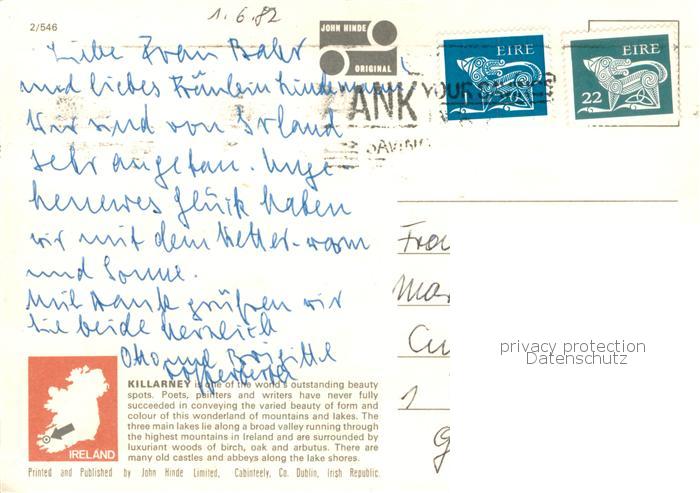 2/546
1.6.82
JOHN HINDE
ORIGINAL
EIRE
EIRE
22
ANK
YOUR
SAVING
Liebe Frau Bahr
und liebes Fräulein Lindemann,
Wir sind von Irland
sehr angetan. Unge-
heueres Glück haben
wir mit dem Wetter - warm
und Sonne.
Mit Dank grüßen wir
Sie beide herzlich
Otto und Brigitte
Fra
Mar
Cu
1
G
privacy protection
Datenschutz
KILLARNEY is one of the world's outstanding beauty
spots. Poets, painters and writers have never fully
succeeded in conveying the varied beauty of form and
colour of this wonderland of mountains and lakes. The
three main lakes lie along a broad valley running through
the highest mountains in Ireland and are surrounded by
luxuriant woods of birch, oak and arbutus. There are
many old castles and abbeys along the lake shores.
IRELAND
Printed and Published by John Hinde Limited, Cabinteely, Co. Dublin, Irish Republic.